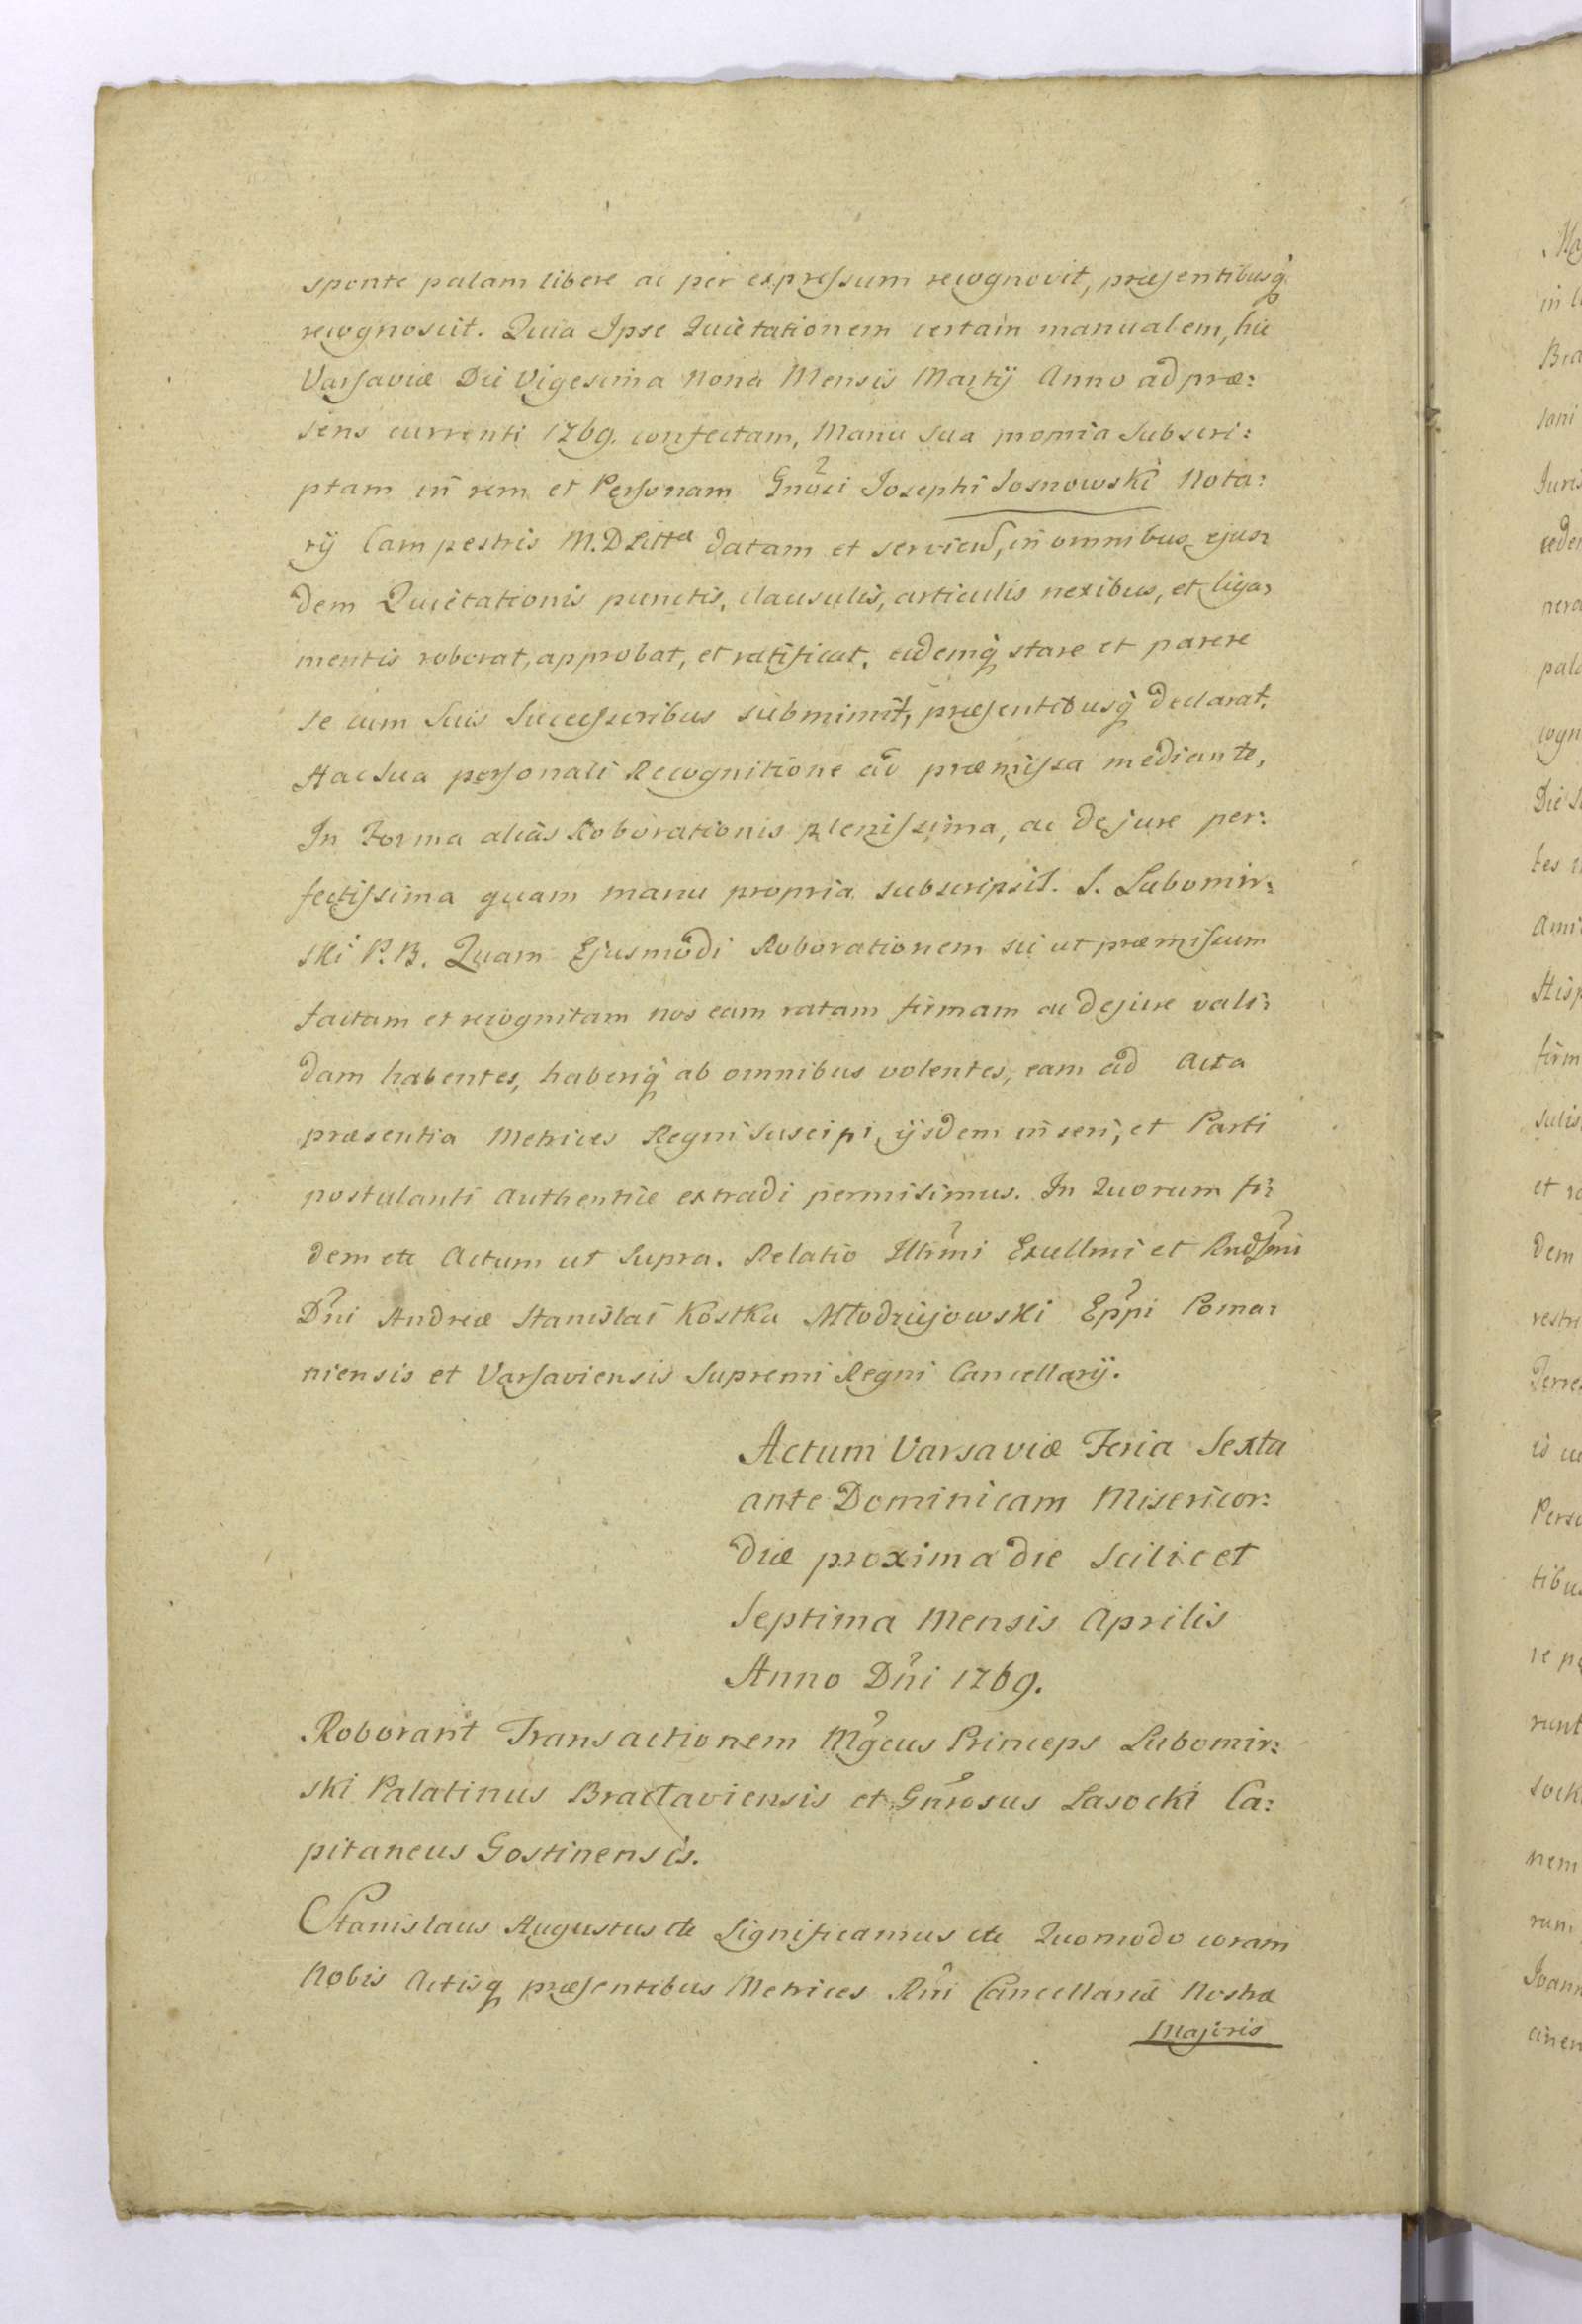 sponte palam libere ac per expressum recognovit, præsentibusq́
recognoscit. Quia Ipse Quietationem certam manualem, hic
Varsaviæ Die Vigesima Nona Mensis Martij Anno ad præ:
sens currenti 1769. confectam, Manu Sua propria Subscri:
ptam in rem et Personam Gnosi Josephi Sosnowski Nota:
rij Campestris M.D Littæ datam et servien, in omnibus ejus:
dem Quietationis punctis, clausulis, articulis nexibus, et liga:
mentis roborat, approbat, et ratificat, eidemq́ stare et parere
se cum Suis Successoribus submimit, præsentibusq́ declarat,
Hac Sua personali Recognitione ad præmissa mediante,
In Forma alias Roborationis plenissima, ac de jure per:
fectissima quam manu propria subscripsit. S. Lubomir:
ski P.B. Quam Ejusmodi Roborationem sic ut præmissum
factam et recognitam nos eam ratam firmam ac dejure vali:
dam habentes, haberiq́ ab omnibus volentes, eam ad Acta
præsentia Metrices Regni suscipi, ijsdem inseri, et Parti
postulanti Authentice extradi permisimus. In Quorum fi:
dem etc Actum ut Supra. Relatio Illrmi Excellmi et Rndssmi
Dni Andreæ Stanislai Kostka Młodziejowski Eppi Posna:
niensis et Varsaviensis Supremi Regni Cancellarij.
Actum Varsaviæ Feria Sexta
ante Dominicam Misericor:
diæ proxima die Scilicet
Septima Mensis Aprilis
Anno Dni 1769.
Roborant Transactionem Mgcus Princeps Lubomir:
ski Palatinus Braclaviensis et Gnrosus Lasocki Ca:
pitaneus Gostinensis.
Stanislaus Augustus etc Significamus etc Quomodo coram
Nobis Actisq́ præsentibus Metrices Rni Cancellariæ Nostræ
Majoris